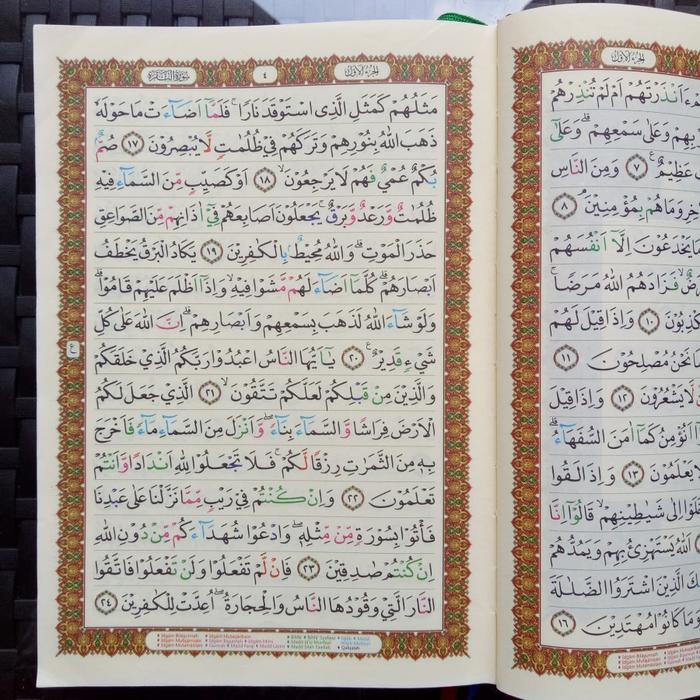 الجزء الاول
٤
سورة البقرة
مَثَلُهُمْ كَمَثَلِ الَّذِى اسْتَوْقَدَ نَارًا ۚ فَلَمَّآ اَضَاۤءَتْ مَا حَوْلَهٗ
ذَهَبَ اللّٰهُ بِنُوْرِهِمْ وَتَرَكَهُمْ فِيْ ظُلُمٰتٍ لَّا يُبْصِرُوْنَ ١٧ صُمٌّ ۢ
بُكْمٌ عُمْيٌ فَهُمْ لَا يَرْجِعُوْنَ ۙ ١٨ اَوْ كَصَيِّبٍ مِّنَ السَّمَاۤءِ فِيْهِ
ظُلُمٰتٌ وَّرَعْدٌ وَّبَرْقٌ ۚ يَجْعَلُوْنَ اَصَابِعَهُمْ فِيْٓ اٰذَانِهِمْ مِّنَ الصَّوَاعِقِ
حَذَرَ الْمَوْتِ ۗ وَاللّٰهُ مُحِيْطٌ ۢ بِالْكٰفِرِيْنَ ١٩ يَكَادُ الْبَرْقُ يَخْطَفُ
اَبْصَارَهُمْ ۗ كُلَّمَآ اَضَاۤءَ لَهُمْ مَّشَوْا فِيْهِ ۙ وَاِذَآ اَظْلَمَ عَلَيْهِمْ قَامُوْا ۗ
وَلَوْ شَاۤءَ اللّٰهُ لَذَهَبَ بِسَمْعِهِمْ وَاَبْصَارِهِمْ ۗ اِنَّ اللّٰهَ عَلٰى كُلِّ
شَيْءٍ قَدِيْرٌ ۚ ٢٠ يٰٓاَيُّهَا النَّاسُ اعْبُدُوْا رَبَّكُمُ الَّذِيْ خَلَقَكُمْ
وَالَّذِيْنَ مِنْ قَبْلِكُمْ لَعَلَّكُمْ تَتَّقُوْنَ ۙ ٢١ الَّذِيْ جَعَلَ لَكُمُ
الْاَرْضَ فِرَاشًا وَّالسَّمَاۤءَ بِنَاۤءً ۖ وَّاَنْزَلَ مِنَ السَّمَاۤءِ مَاۤءً فَاَخْرَجَ
بِهٖ مِنَ الثَّمَرٰتِ رِزْقًا لَّكُمْ ۚ فَلَا تَجْعَلُوْا لِلّٰهِ اَنْدَادًا وَّاَنْتُمْ
تَعْلَمُوْنَ ٢٢ وَاِنْ كُنْتُمْ فِيْ رَيْبٍ مِّمَّا نَزَّلْنَا عَلٰى عَبْدِنَا
فَأْتُوْا بِسُوْرَةٍ مِّنْ مِّثْلِهٖ ۖ وَادْعُوْا شُهَدَاۤءَكُمْ مِّنْ دُوْنِ اللّٰهِ
اِنْ كُنْتُمْ صٰدِقِيْنَ ٢٣ فَاِنْ لَّمْ تَفْعَلُوْا وَلَنْ تَفْعَلُوْا فَاتَّقُوا
النَّارَ الَّتِيْ وَقُوْدُهَا النَّاسُ وَالْحِجَارَةُ ۖ اُعِدَّتْ لِلْكٰفِرِيْنَ ٢٤
ع
الجزء الاول
ءَاَنْذَرْتَهُمْ اَمْ لَمْ تُنْذِرْهُمْ
وَعَلٰى سَمْعِهِمْ ۗ وَعَلٰٓى
عَظِيْمٌ ٧ وَمِنَ النَّاسِ
وَمَا هُمْ بِمُؤْمِنِيْنَ ۘ ٨
يَخْدَعُوْنَ اِلَّآ اَنْفُسَهُمْ
فَزَادَهُمُ اللّٰهُ مَرَضًا ۚ
١٠ وَاِذَا قِيْلَ لَهُمْ
نَحْنُ مُصْلِحُوْنَ ١١
لَّا يَشْعُرُوْنَ ١٢ وَاِذَا قِيْلَ
اَنُؤْمِنُ كَمَآ اٰمَنَ السُّفَهَاۤءُ ۗ
يَعْلَمُوْنَ ١٣ وَاِذَا لَقُوا
اِلٰى شَيٰطِيْنِهِمْ ۙ قَالُوْٓا اِنَّا
اَللّٰهُ يَسْتَهْزِئُ بِهِمْ وَيَمُدُّهُمْ
الَّذِيْنَ اشْتَرَوُا الضَّلٰلَةَ
وَمَا كَانُوْا مُهْتَدِيْنَ ١٦